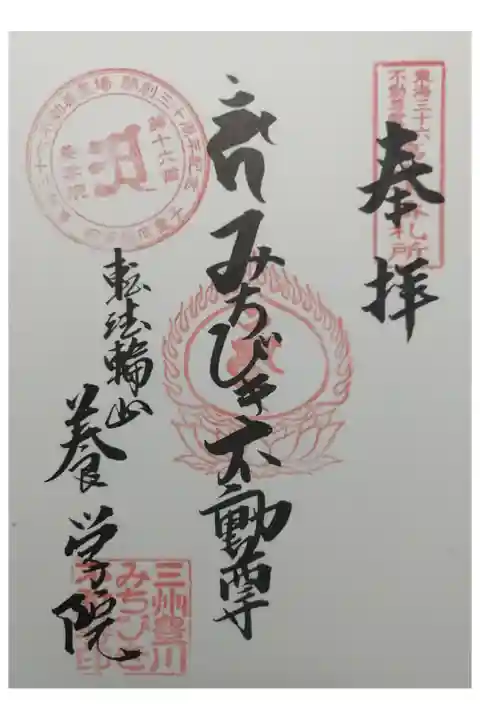 奉拝
東海三十六
不動尊
札所
みちびき不動尊
転法輪山
養学院
開創三十周年記念
第十六番
三州豊川
みちびき